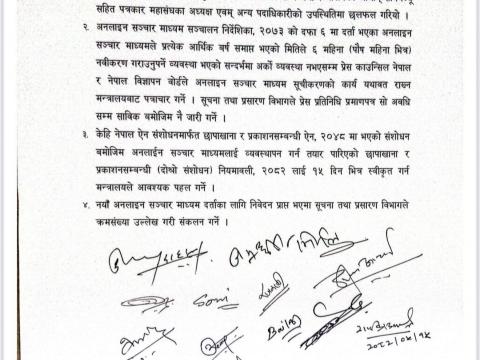 सहित पत्रकार महासंघका अध्यक्ष एवम् अन्य पदाधिकारीको उपस्थितिमा छलफल गरियो ।
२. अनलाइन सञ्चार माध्यम सञ्चालन निर्देशिका, २०७३ को दफा ६ मा दर्ता भएका अनलाइन
सञ्चार माध्यमले प्रत्येक आर्थिक वर्ष समाप्त भएको मितिले ६ महिना (पौष महिना भित्र)
नवीकरण गराउनुपर्ने व्यवस्था भएको सन्दर्भमा अर्को व्यवस्था नभएसम्म प्रेस काउन्सिल नेपाल
र नेपाल विज्ञापन बोर्डले अनलाइन सञ्चार माध्यम सूचीकरणको कार्य यथावत राख्न
मन्त्रालयबाट पत्राचार गर्ने । सूचना तथा प्रसारण विभागले प्रेस प्रतिनिधि प्रमाणपत्र सो अवधि
सम्म साबिक बमोजिम नै जारी गर्ने ।
३. केहि नेपाल ऐन संशोधनमार्फत छापाखाना र प्रकाशनसम्बन्धी ऐन, २०४८ मा भएको संशोधन
बमोजिम अनलाईन सञ्चार माध्यमलाई व्यवस्थापन गर्न तयार पारिएको छापाखाना र
प्रकाशनसम्बन्धी (दोश्रो संशोधन) नियमावली, २०८२ लाई १५ दिन भित्र स्वीकृत गर्न
मन्त्रालयले आवश्यक पहल गर्ने ।
४. नयाँ अनलाइन सञ्चार माध्यम दर्ताका लागि निवेदन प्राप्त भएमा सूचना तथा प्रसारण विभागले
क्रमसंख्या उल्लेख गरी संकलन गर्ने ।